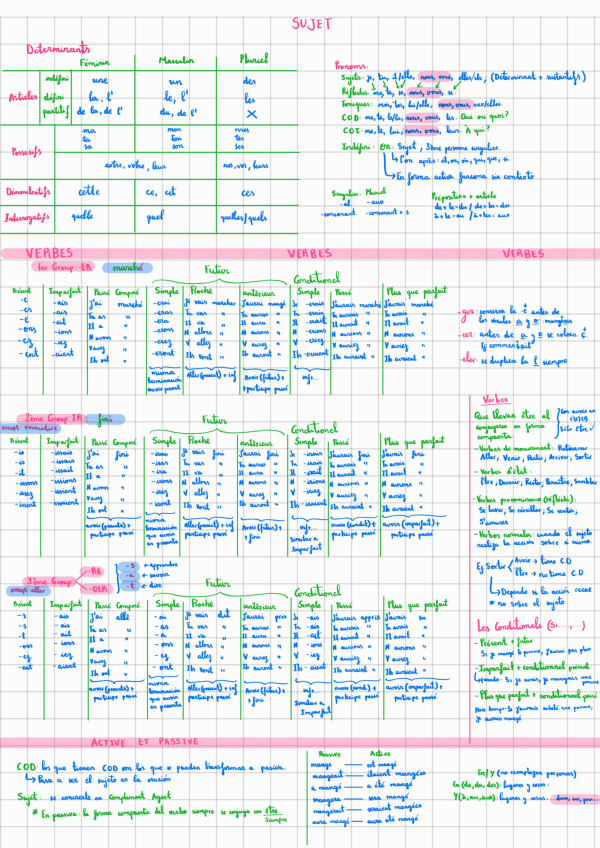 SUJET
Determinants
Féminin Masculin Pluriel
Articles
indéfini une un des
défini la, l' le, l' les
partitif de la, de l' du, de l' X
Possesifs
ma mon mes
ta ton tes
sa son ses
notre, votre, leur nos, vos, leurs
Démonstratifs cette ce, cet ces
Interrogatifs quelle quel quelles/quels
Pronoms:
Sujets: je, tu, il/elle, nous, vous, elles/ils;
Réfléxes: me, te, se, nous, vous, se
Toniques: moi, toi, lui/elle, nous, vous, eux/elles
COD: me, te, le/la, nous, vous, les. Qui ou quoi?
COI: me, te, lui, nous, vous, leur. À qui?
Indéfini: On: Sujet; 3ème persona singulier.
L'on après: et, ou, où, qui, que, si.
En forma activa funciona sin contexto
Singulier Pluriel
-al -aux
-consonant -consonant + s
Préposition + article
de+le=du / de+les=des
à+le=au / à+les=aux
VERBES VERBES VERBES
1er Group -ER marché
Futur
Conditionel
Présent Imparfait Passé Composé Simple Proche antérieur Simple Passé Plus que parfait
-e -ais J'ai marché -erai Je vais marcher J'aurai mangé Je -erais J'aurais marché J'avais marché
-es -ais Tu as " -eras Tu vas " Tu auras " Tu -erais Tu aurais " Tu avais "
-e -ait Il a " -era Il va " Il aura " Il -erait Il aurait " Il avait "
-ons -ions N avons " -erons N allons " N aurons " N -erions N aurions " N avions "
-ez -iez V avez " -erez V allez " V aurez " V -eriez V auriez " V aviez "
-ent -aient Ils ont " -eront Ils vont " Ils auront " Ils -eraient Ils auraient " Ils avaient "
misma terminación
Aller(present) + inf
Avoir(futur) + participe passé
inf...
-ger: conserva la -e antes de
las vocales a y o: mangeais
-cer: antes de a y o se coloca
ç: commençait
-eler: se duplica la l siempre
2ème Group IR fini
Futur
Conditionel
Présent Imparfait Passé Composé Simple Proche antérieur Simple Passé Plus que parfait
-is -issais J'ai fini -irai Je vais fini J'aurai fini Je -irais J'aurais fini J'avais fini
-is -issais Tu as " -iras Tu vas " Tu auras " Tu -irais Tu aurais " Tu avais "
-it -issait Il a " -ira Il va " Il aura " Il -irait Il aurait " Il avait "
-issons -issions N avons " -irons N allons " N aurons " N -irions N aurions " N avions "
-issez -issiez V avez " -irez V allez " V aurez " V -iriez V auriez " V aviez "
-issent -issaient Ils ont " -iront Ils vont " Ils auront " Ils -iraient Ils auraient " Ils avaient "
participe passé
misma terminación que avoir en presente
Aller(present) + inf
Avoir(futur) +
inf... + similar a Imparfait
participe passé
avoir(imparfait) + participe passé
Verbes
Que llevan être al
conjugarse en forma
compuesta
- Verbes de mouvement: Retourner
Aller, Venir, Partir, Arriver, Sortir
- Verbes d'état:
Être, Devenir, Rester, Paraître, Sembler
- Verbes pronominaux (réfléchi):
Se laver, Se réveiller, Se sentir,
S'amuser
- Verbes normales: cuando el sujeto
realiza la acción sobre sí mismo.
Ej. Sortir
Avoir → tiene CD
Être → no tiene CD
Depende si la acción recae
o no sobre el sujeto
3ème Group
-RE
-OIR
-s → apprendre
-u → savoir
-t → dire
except aller
Futur
Conditionel
Présent Imparfait Passé Composé Simple Proche antérieur Simple Passé Plus que parfait
-s -ais J'ai allé -ai Je vais dit J'aurai pris Je -ais J'aurais appris J'avais su
-s -ais Tu as " -as Tu vas " Tu auras " Tu -ais Tu aurais " Tu avais "
-t -ait Il a " -a Il va " Il aura " Il -ait Il aurait " Il avait "
-ons -ions N avons " -ons N allons " N aurons " N -ions N aurions " N avions "
-ez -iez V avez " -ez V allez " V aurez " V -iez V auriez " V aviez "
-ent -aient Ils ont " -ont Ils vont " Ils auront " Ils -aient Ils auraient " Ils avaient "
participe passé
misma terminación que avoir en presente
Aller(present) + inf
Avoir(futur) +
inf... Similar a Imparfait
avoir(cond) + participe passé
avoir(imparfait) + participe passé
Les Conditionels (Si...,...)
- Présent + futur
- Imparfait + conditionnel présent
- Plus que parfait + conditionnel passé
ACTIVE ET PASSIVE
COD: los que tienen COD son los que se pueden transformar a pasiva.
Pasa a ser el sujeto en la oración
Sujet: se convierte en Complement Agent
* En passiva: la forma compuesta del verbo siempre se conjuga con Être
Siempre
Passive Active
mange — est mangé
mangeait — étaient mangées
a mangé — a été mangé
mangera — sera mangé
mangerait — seraient mangées
aura mangé — aura été mangé
En/Y (no remplaza personas)
En (de, du, des): lugares y cosas.
Y (à, au, aux): lugares y cosas.